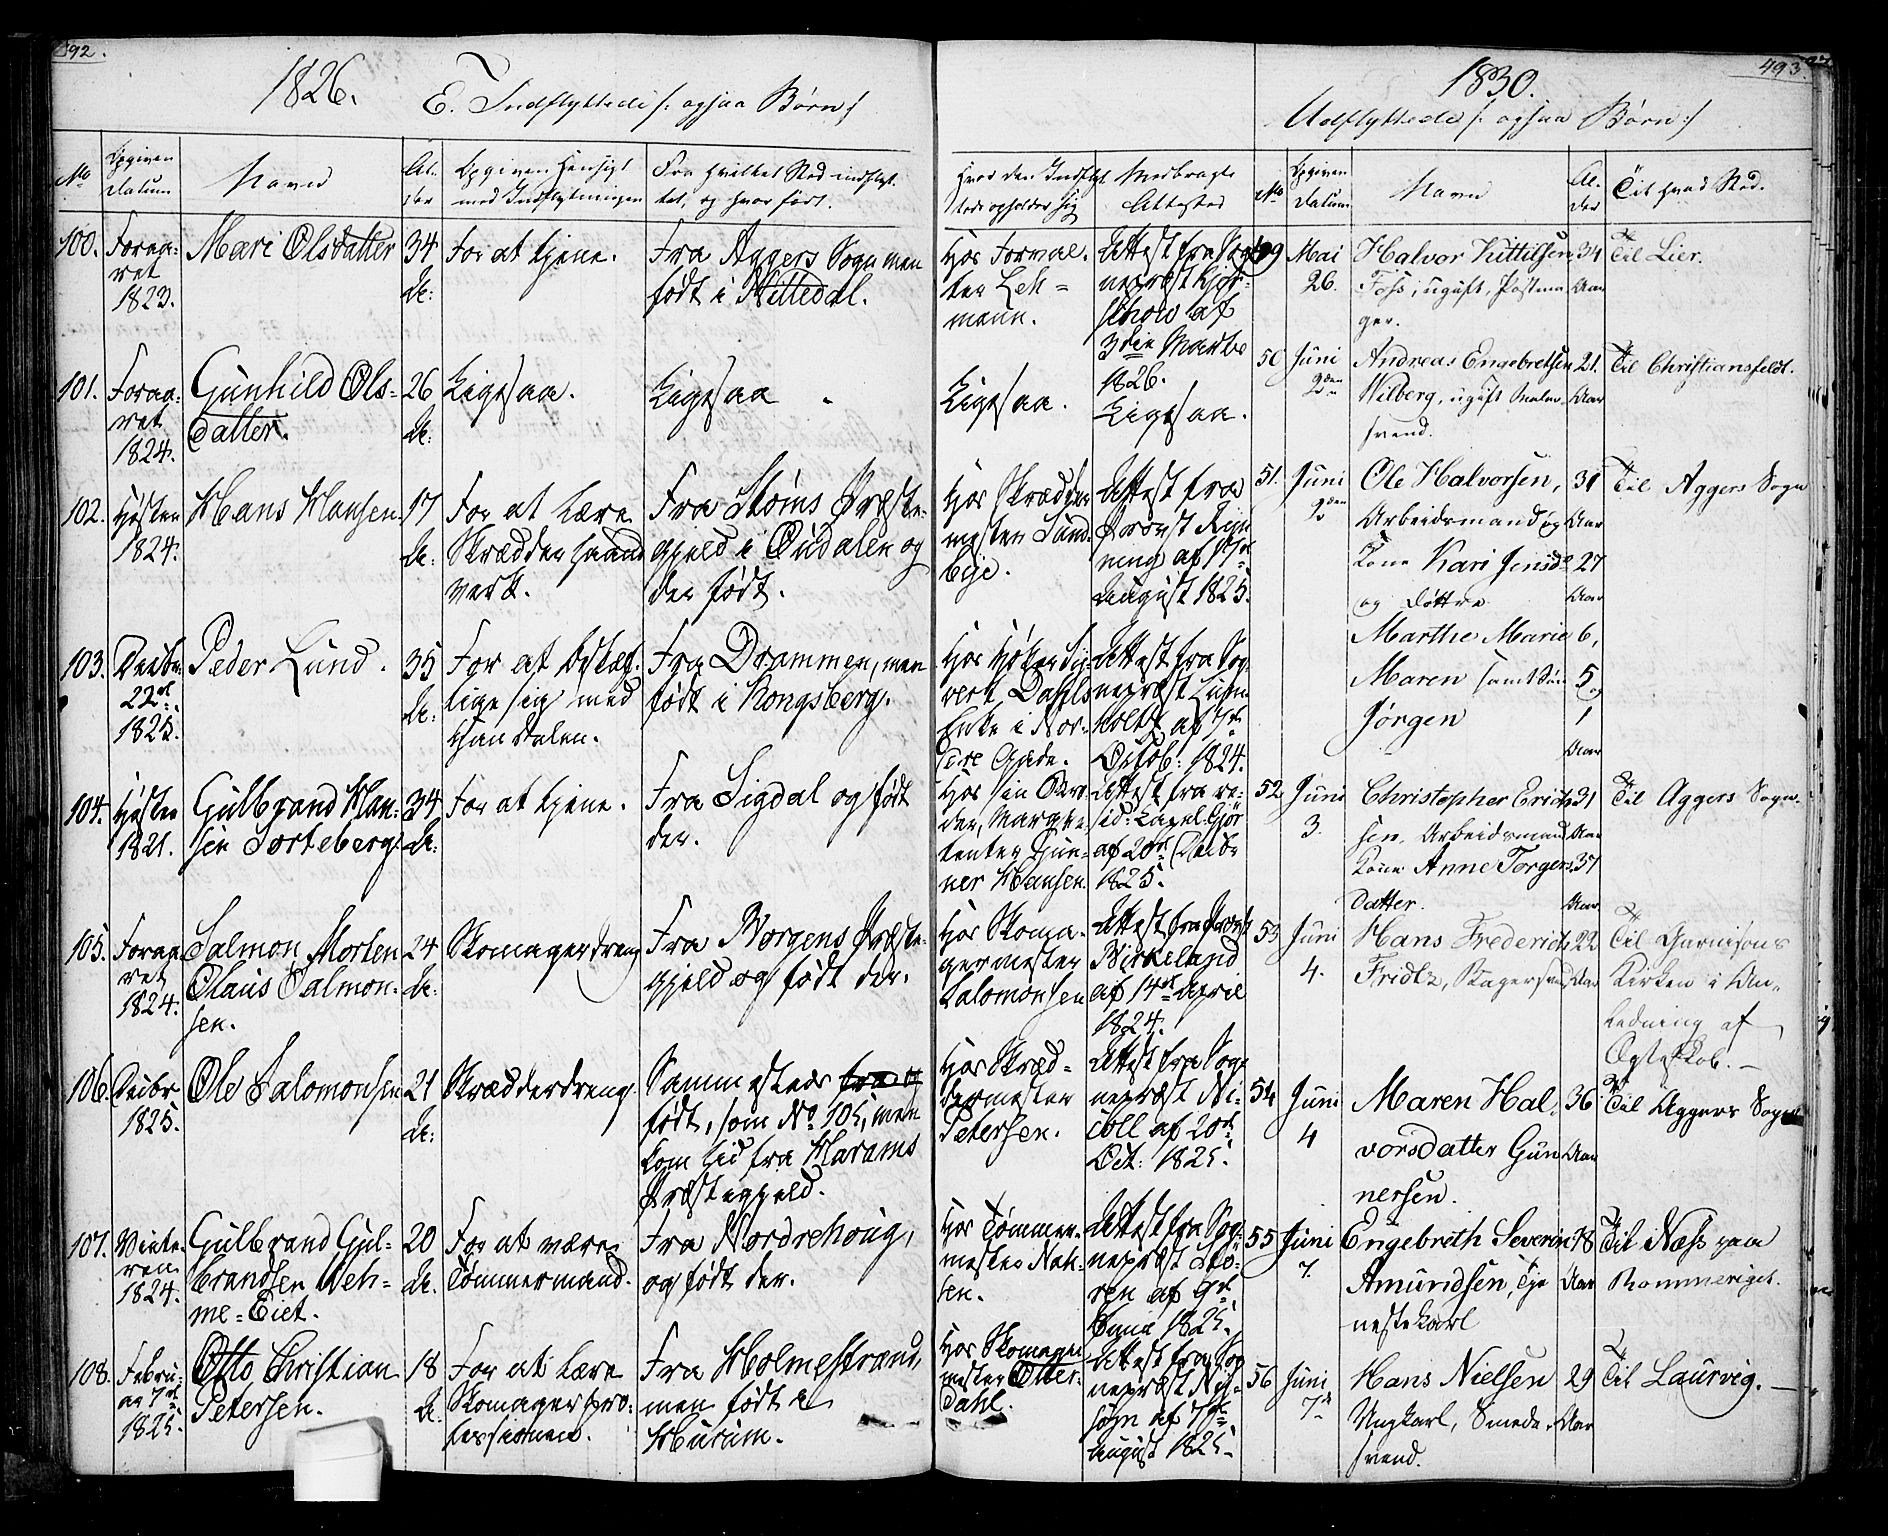 492.
1826.
E. Indflyttede /: ogsaa Børn :/
No
Opgiven Datum
Navn
Alder
Opgiven Hensigt med Indflytningen
Fra hvilket Sted indflyttet, og hvor født.
Hvor den Indflyttede opholder sig
Medbragte Attester
100.
Foraaret
1823.
Mari Olsdatter
34
A:
For at tjene.
Fra Aggers Sogn men
født i Nittedal.
Hos Forvalter
Lehmann.
Attest fra Sognepræst
af
3die Martz
1826.
101.
Foraaret
1824.
Gunhild Olsdatter.
26
A:
Ligesaa.
Ligesaa
Ligesaa.
Ligesaa.
102.
Høsten
1824.
Hans Hansen
17
A:
For at lære
Skrædderhaandverk.
Fra Ströms Præstegjeld
i Oudalen og
der født.
Hos Skræddermester
Lundbye.
Attest fra
Provst Rynning
af 17de
August 1825.
103.
Decbr.
22de
1825.
Peder Lund.
35
A:
For at beskjæftige
sig med
Handelen.
Fra Drammen, men
født i Kongsberg.
Hos Høker Syvert
Dahls
Enke i Nordre
Gade.
Attest fra Sognepræst
Lumholtz
af 7de
Octob: 1824.
104.
Høsten
1821.
Gulbrand Hansen
Sorteberg
34
A:
For at tjene.
Fra Sigdal og født
der.
Hos sin Broder,
Marketenter
Gunner
Hansen.
Attest fra resid:
Capel. Gjör
af 20de Decbr
1825.
105.
Foraaret
1824.
Salmon Morten
Olaus Salmonsen.
24
A:
Skomagerdreng
Fra Borgens Præstegjeld
og født der.
Hos Skomagermester
Salomonsen
Attest fra Provst
Birkeland
af 14de April
1824.
106.
Decbr
1825.
Ole Salomonsen
21
A:
Skrædderdreng.
Sammesteds
født, som No 105, men
kom hid fra Harams
Præstegjeld.
Hos Skræddermester
Petersen.
Attest fra Sognepræst
af 20de
Oct: 1825.
107.
Vinteren
1824.
Gulbrand Gulbrandsen
Vehme-Eiet.
20
A:
For at være
Tømmermand.
Fra Nordrehoug,
og født der.
Hos Tømmermester
Attest fra Sognepræst
Stören
af 9de
Junii 1825.
108.
Februar
7de
1825.
Otto Christian
Petersen.
18
A:
For at lære
Skomagerprofessionen.
Fra Holmestrand,
men født i
Hurum.
Hos Skomagermester
Otterdahl.
Attest fra Sognepræst
af 7de
August 1825.
493
1830.
Udflyttede /: ogsaa Børn :/
No
Opgiven Datum
Navn
Alder
Til hvad Sted.
49
Mai
26.
Halvor Kittilsen
Foss, ugift,
34
Aar
Til Lier.
50
Juni
2den
Andreas Engebretsen
Wilberg, ugift Malersvend.
21.
Aar
Til Christiansfeldt.
51.
Juni
2den
Ole Halvorsen,
Arbeidsmand og
Kone Kari Jensd.
og Døttre
Marthe Marie
Maren samt Søn
Jørgen
31
Aar
27
Aar
6,
5 og
1
Aar
Til Aggers Sogn
52.
Juni
3.
Christopher Erichsen,
Arbeidsmand
Kone Anne Torgersdatter.
31
Aar
37
Aar
Til Aggers Sogn.
53
Juni
4.
Hans Frederich
Fridtz, Bagersvend
22
Aar
Til Garnisons
Kirken i Anledning
af
Ægteskab.
54
Juni
4
Maren Halvorsdatter
Gunnersen.
36
Aar
Til Aggers Sogn
55
Juni
7.
Engebreth Severin
Amundsen, Tjenestekarl
18
Aar
Til Næss paa
Rommeriget.
56
Juni
7de
Hans Nielsen
Ungkarl, Smedesvend.
29
Aar
Til Laurvig.